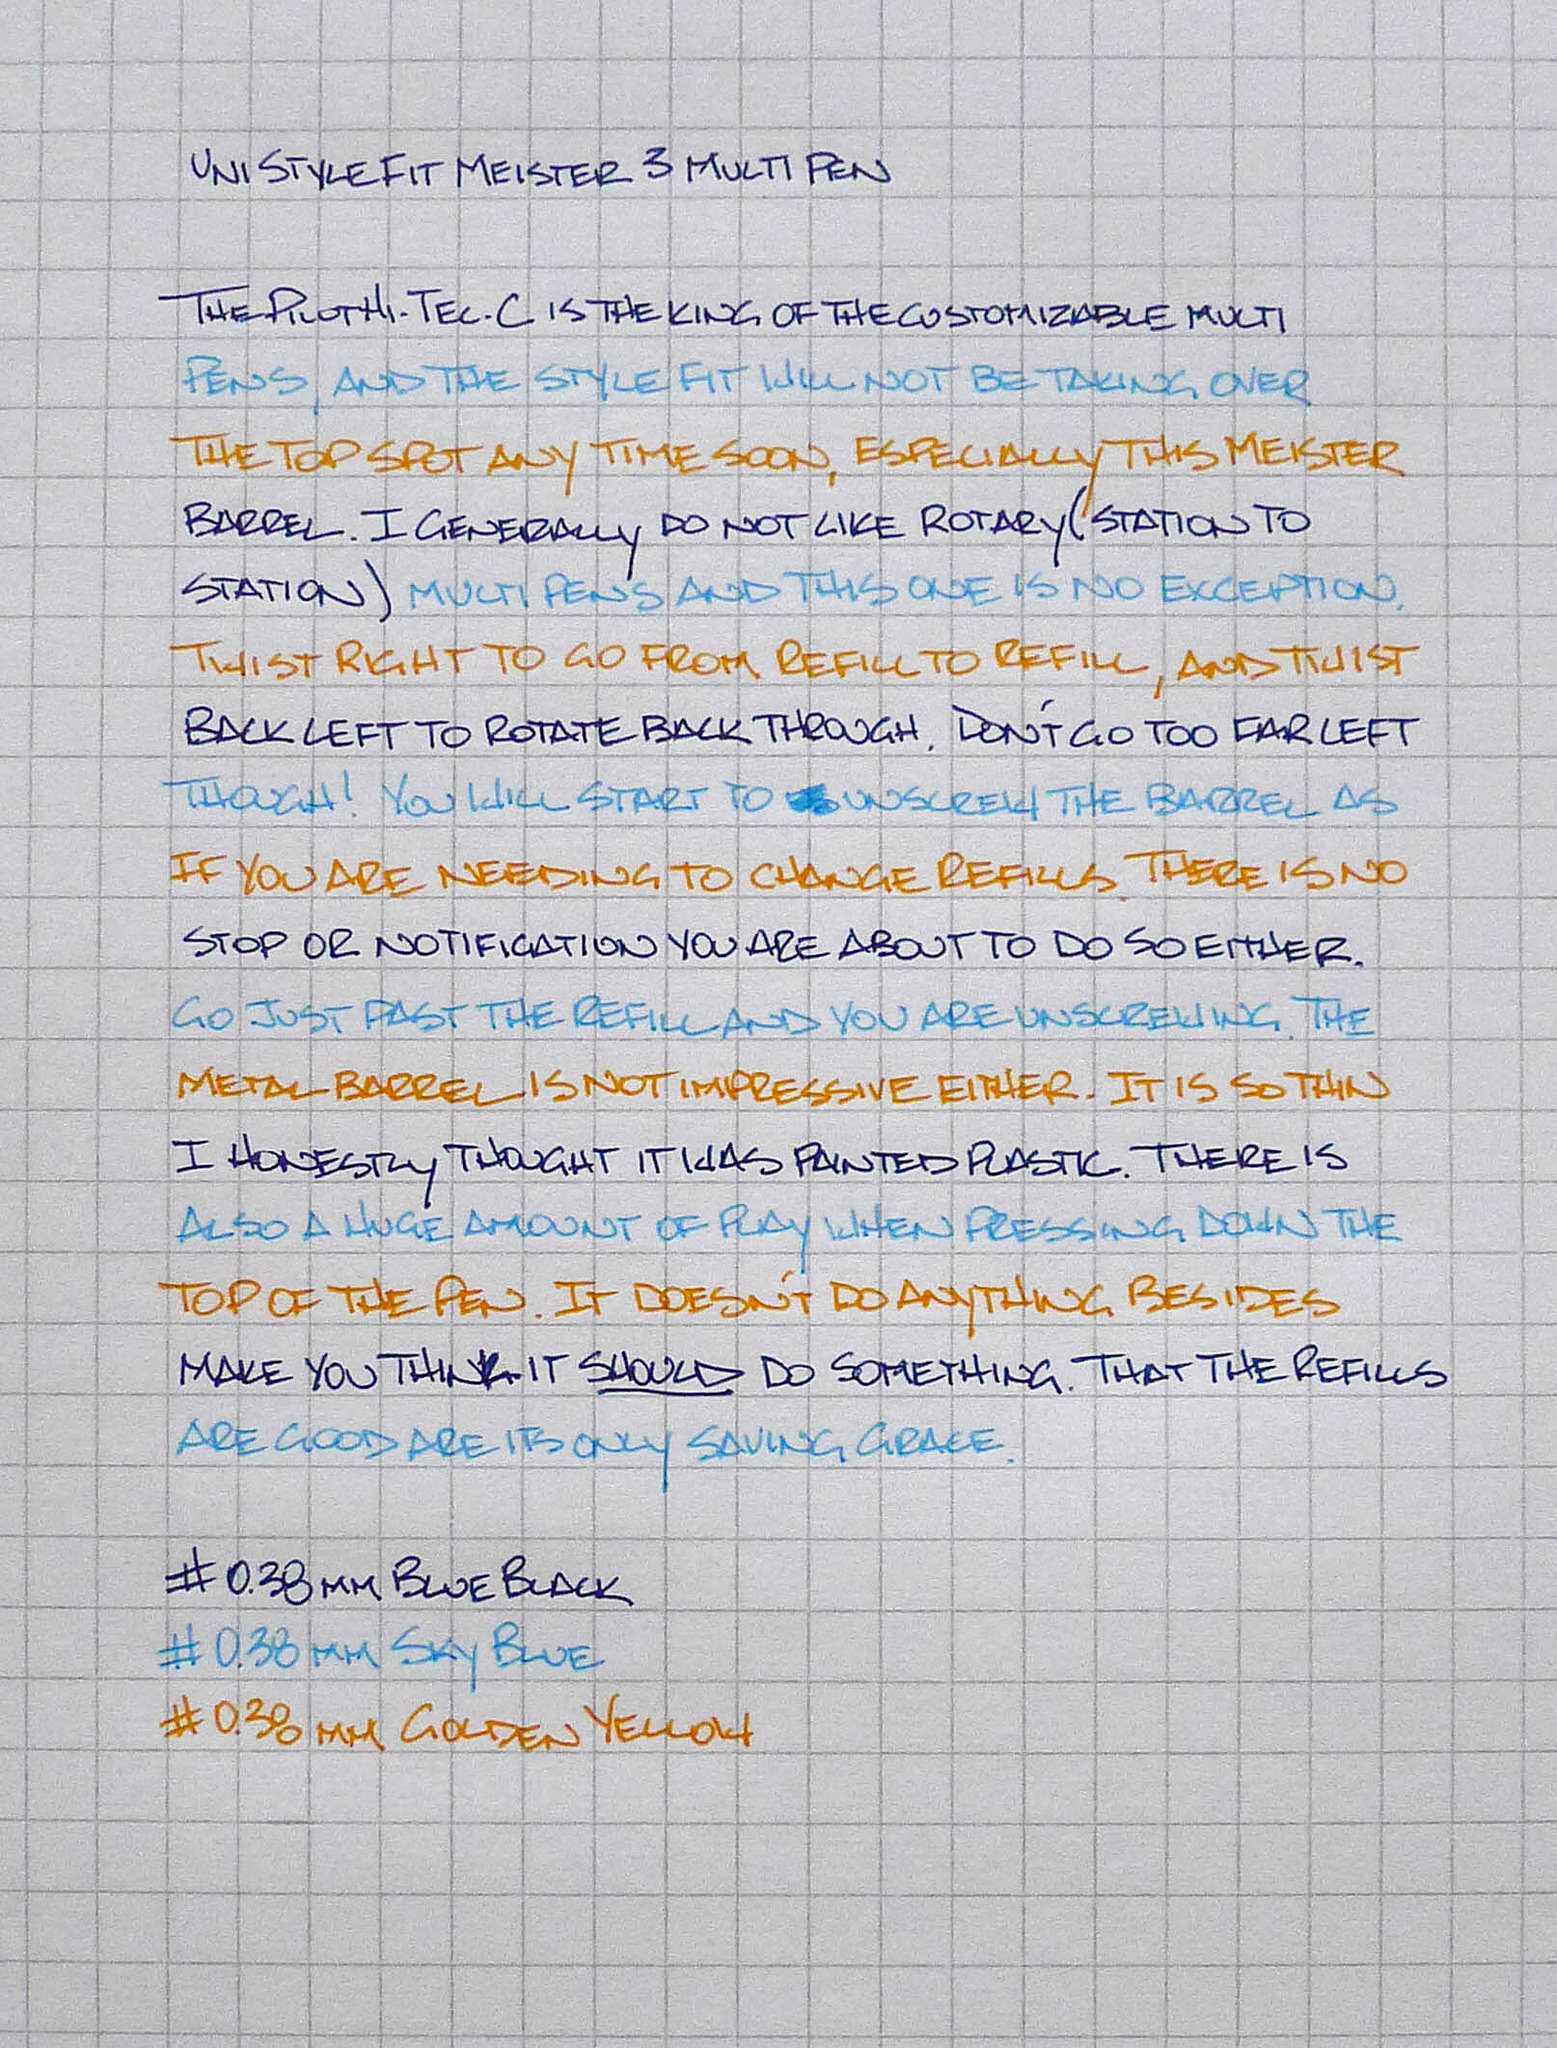 UNI STYLE FIT MEISTER 3 MULTI PEN
THE PILOT HI-TEC-C IS THE KING OF THE CUSTOMIZABLE MULTI
PENS, AND THE STYLE FIT WILL NOT BE TAKING OVER
THE TOP SPOT ANY TIME SOON, ESPECIALLY THIS MEISTER
BARREL. I GENERALLY DO NOT LIKE ROTARY (STATION TO
STATION) MULTI PENS AND THIS ONE IS NO EXCEPTION.
TWIST RIGHT TO GO FROM REFILL TO REFILL, AND TWIST
BACK LEFT TO ROTATE BACK THROUGH. DON'T GO TOO FAR LEFT
THOUGH! YOU WILL START TO UNSCREW THE BARREL AS
IF YOU ARE NEEDING TO CHANGE REFILLS. THERE IS NO
STOP OR NOTIFICATION YOU ARE ABOUT TO DO SO EITHER.
GO JUST PAST THE REFILL AND YOU ARE UNSCREWING. THE
METAL BARREL IS NOT IMPRESSIVE EITHER. IT IS SO THIN
I HONESTLY THOUGHT IT WAS PAINTED PLASTIC. THERE IS
ALSO A HUGE AMOUNT OF PLAY WHEN PRESSING DOWN THE
TOP OF THE PEN. IT DOESN'T DO ANYTHING BESIDES
MAKE YOU THINK IT SHOULD DO SOMETHING. THAT THE REFILLS
ARE GOOD ARE ITS ONLY SAVING GRACE.
# 0.38 MM BLUE BLACK
# 0.38 MM SKY BLUE
# 0.38 MM GOLDEN YELLOW